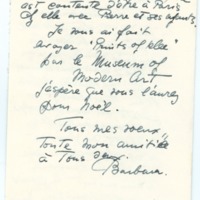 est contente d'être à Paris
elle avec Pierre et ses enfants.
Je vous ai fait
envoyer "Fruits of
par le Museum of
Modern Art
j'espère que vous l'aurez
pour Noël.
Tous mes vœux,
toute mon amitié
à Tous deux.
Barbara.